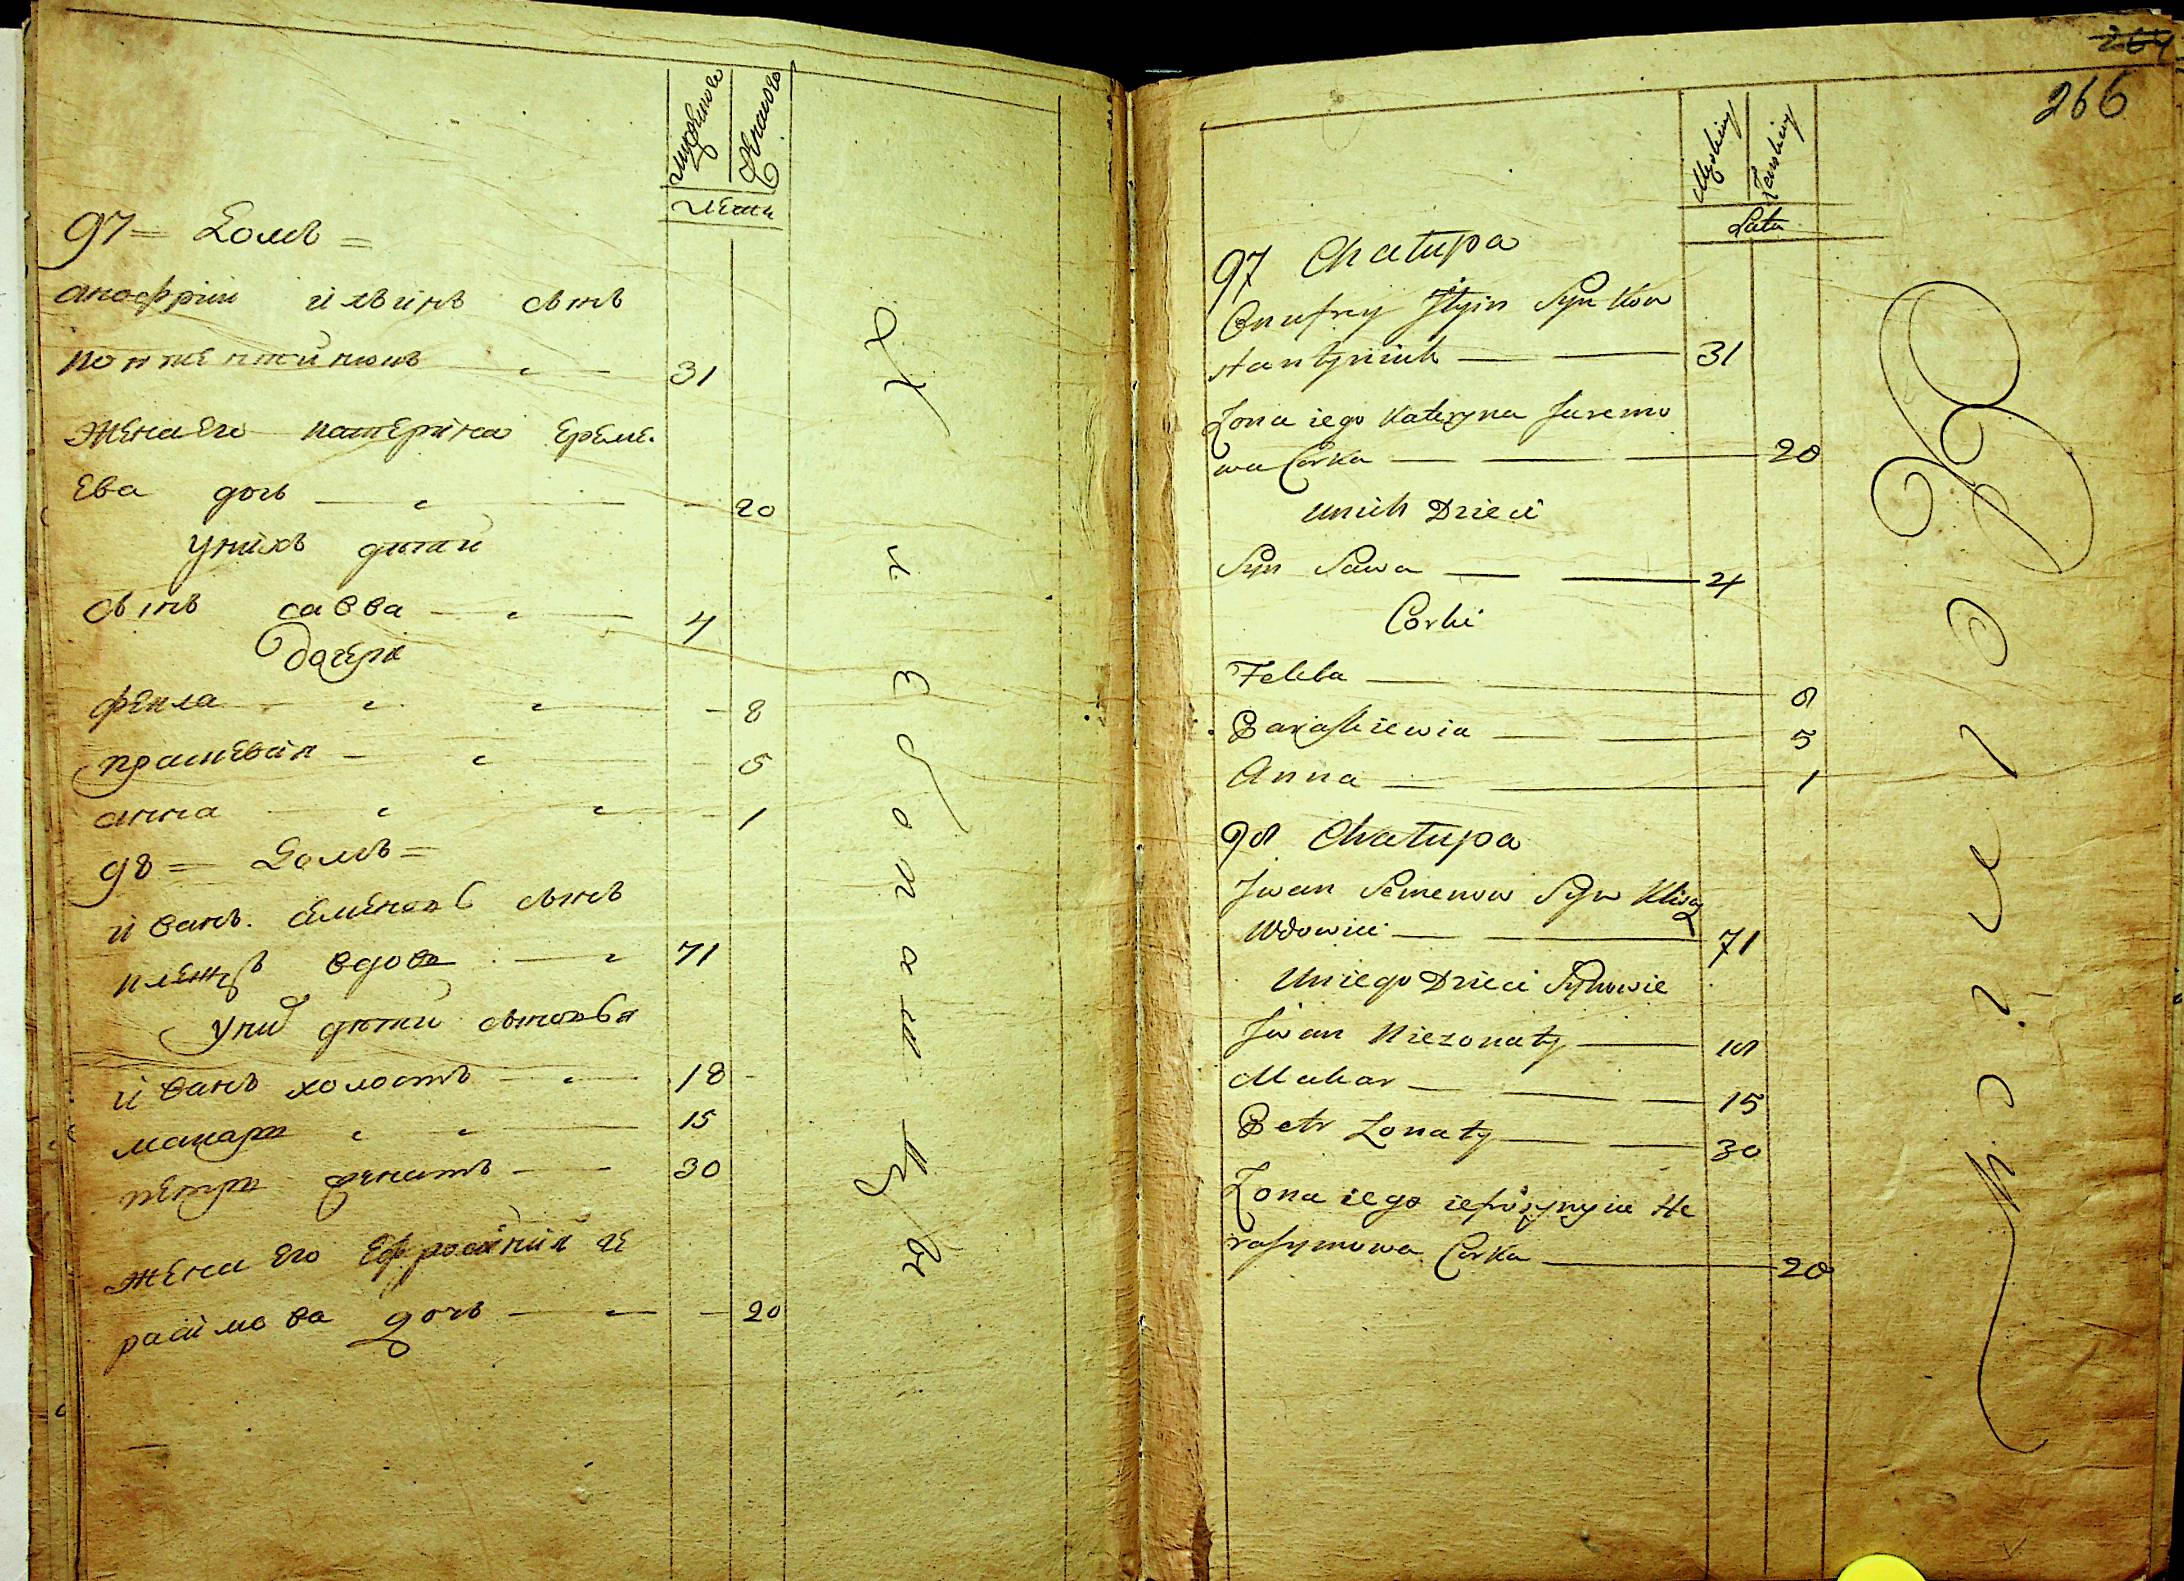 Мужеска
Женска
Лета
97 = Домъ =
анофріи ільінъ сынъ
константинюкъ 31
жена его катеріна ереме
ева дочь 20
у ніхъ дѣти
сынъ савва 4
Дочери
фекла 8
прасковія 5
анна 1
98 = Домъ =
иванъ семеновъ сынъ
вдовъ 71
у него дѣти сыновья
иванъ холостъ 18
макаръ 15
петръ женатъ 30
жена его ефросинія ге
расімова дочь 20
264
266
Męskiey
Żenskiey
Lata
97 Chałupa
Onufrey Jlyin Syn Kon
stantyniuk 31
Żona iego Kateryna Jaremo
wa Corka 20
u nich Dzieci
Syn Sawa 4
Corki
Fekla 8
Paraskiewia 5
Anna 1
98 Chałupa
Jwan Semenow Syn
Wdowiec 71
U niego Dzieci Synowie
Jwan Niezonaty 18
Makar 15
Petr Zonaty 30
Żona iego iefrosynyia He
rasymowa Corka 20